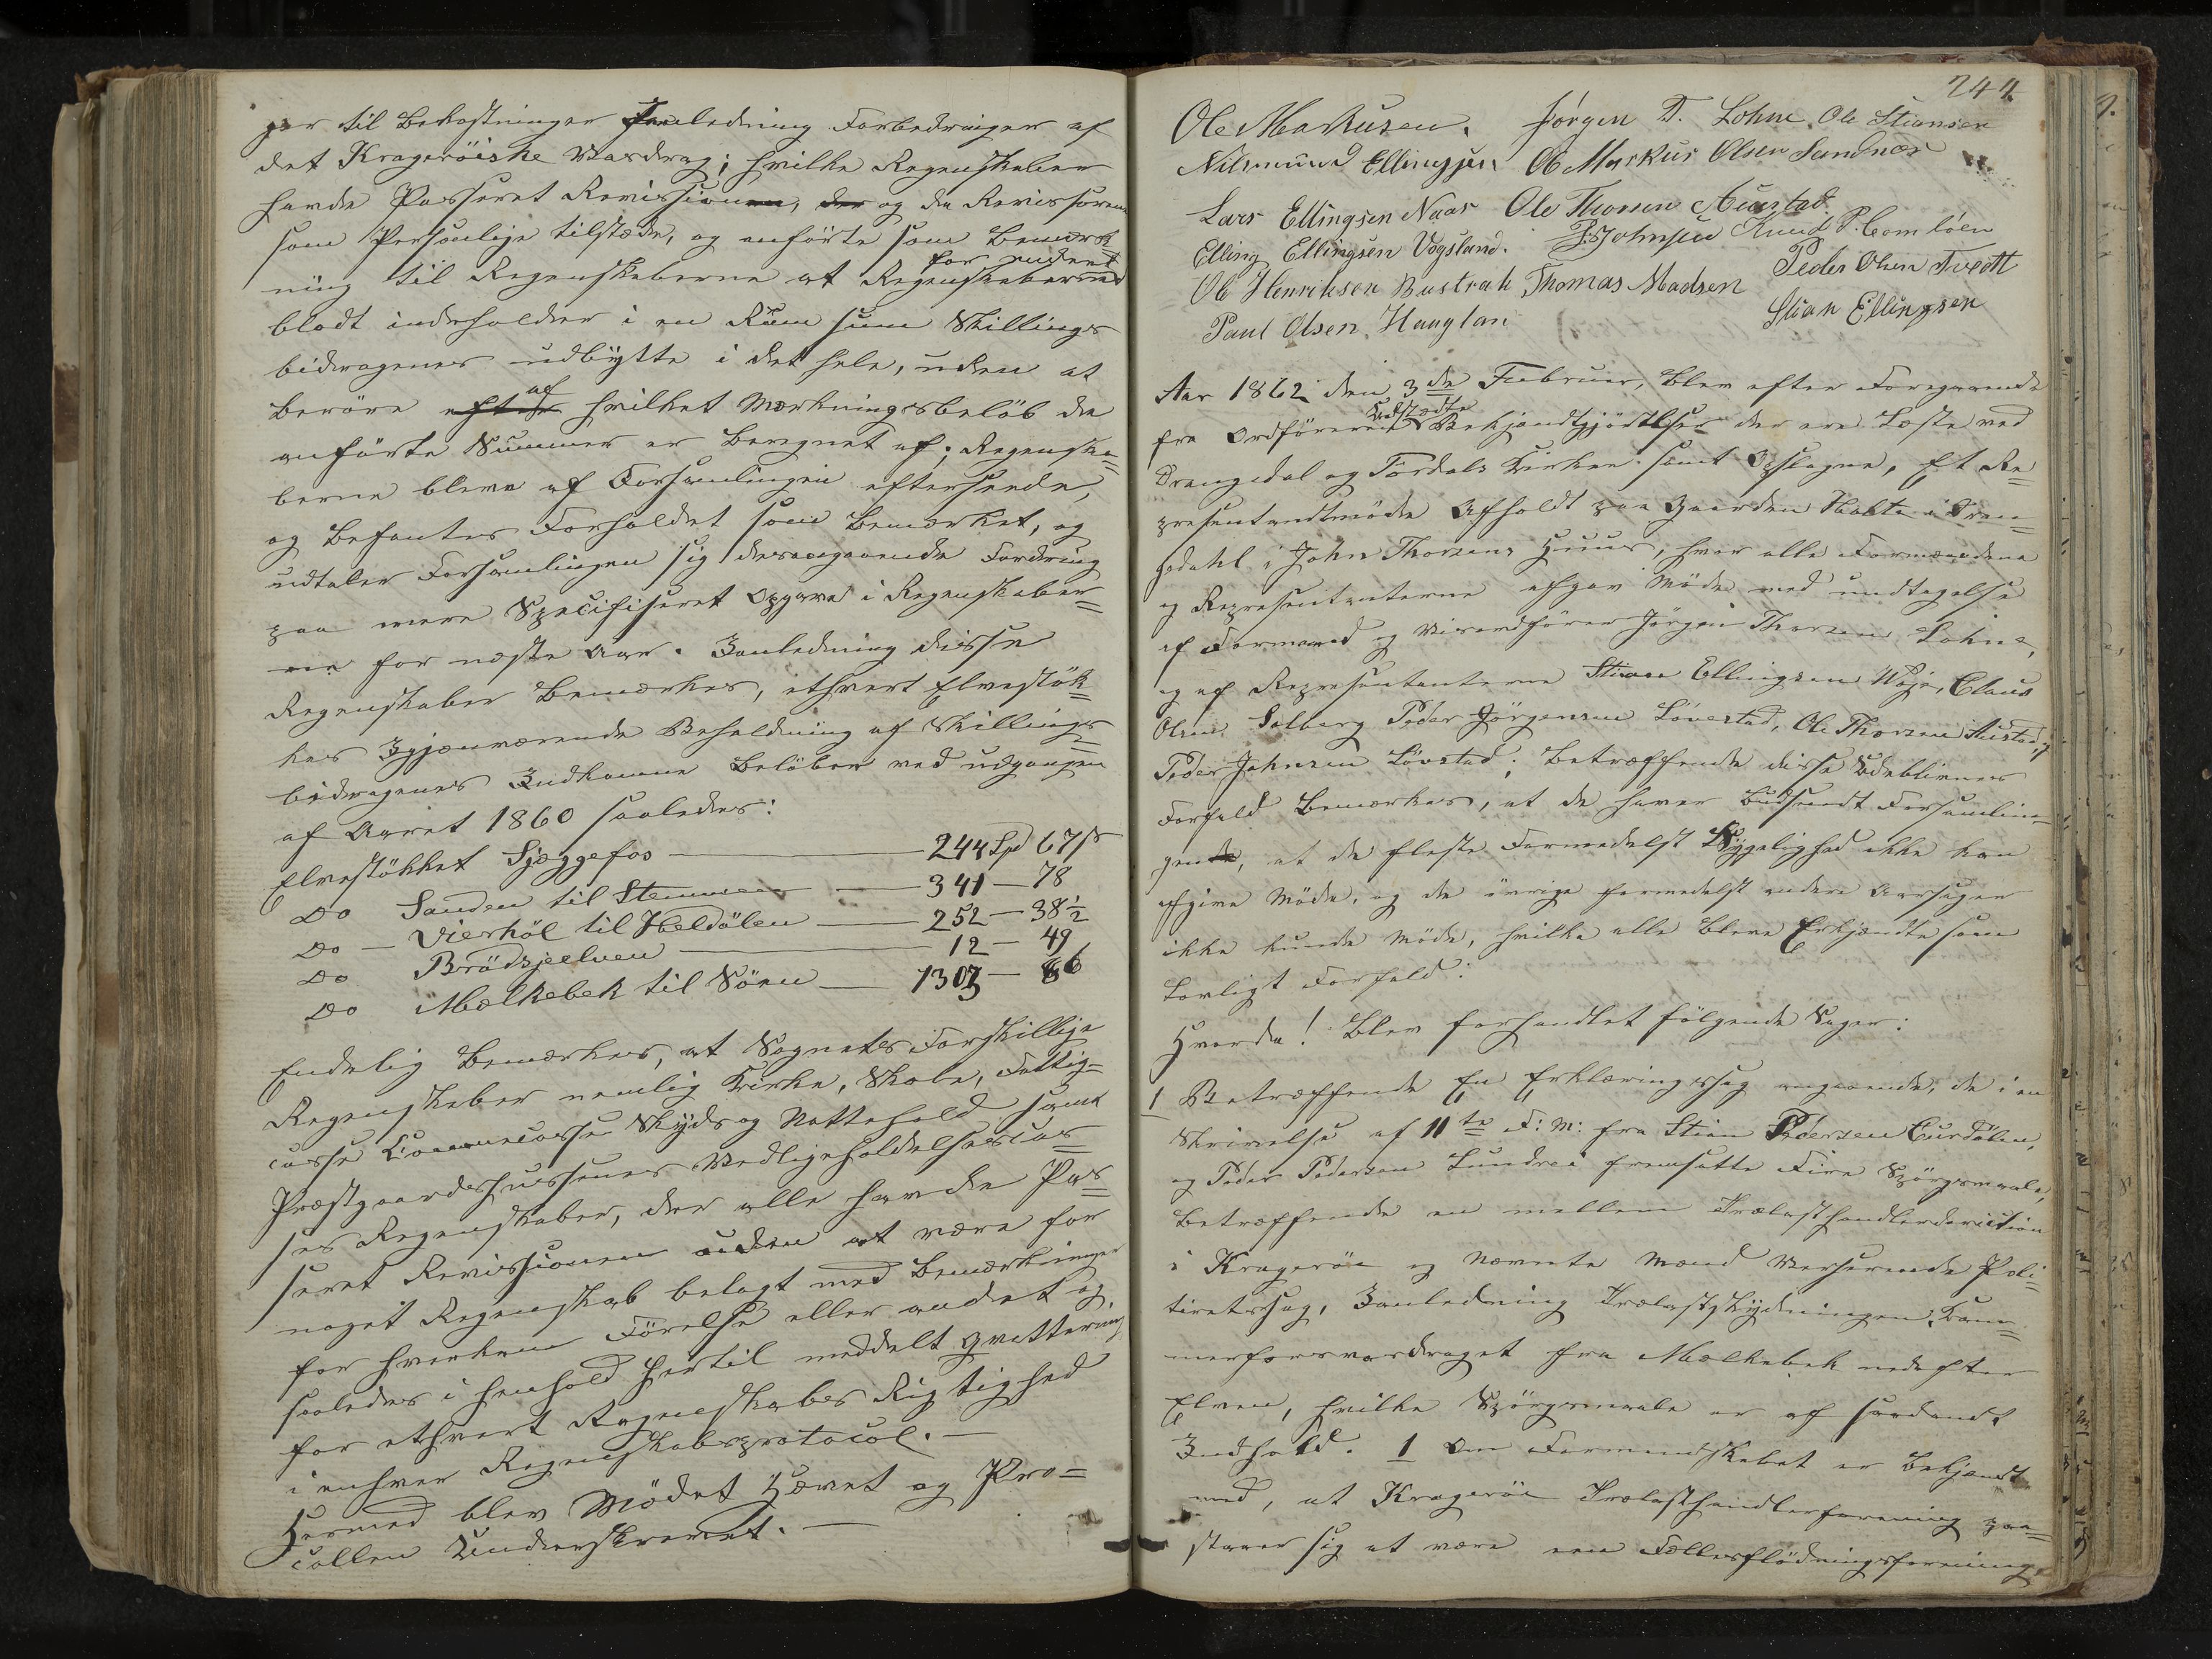 ger til Bekostninger Ianledning Forbedringer af
det Kragerøiske Vasdrag; hvilke Regenskaber
havde Passeret Revissionen, der og da Revissorene
som Personlige tilstæde, og anførte som Bemærk-
ning til Regenskaberne at Regenskaberne
for
blodt indeholder i en Rum sum Skillings
bidragenes udbytte i det hele, uden at
Berøre efter af hvilket Mærkningsbeløb de
anførte Summer er Beregnet af; Regenska=
berne bleve af Forsamlingen efterseede,
og Befantes Forholdet som Bemærket, og
udtaler Forsamlingen sig desangaaende Fordring
paa mere Specifiseret Opgave i Regenskaber=
ne for næste Aar. Ianledning disse
Regenskaber Bemærkes, ethvert Elvestøk=
kes Igjenværende Beholdning af Skillings=
bidragenes Indkomme Beløber ved udgangen
af Aaret 1860 saaledes:
Elvestøkket Sjæggefos — 244 Spd 67 s
Do Sanden til Stemmen — 341 — 78
Do — Vierhøl til Heldølen — 252 — 38½
Do Brødsjeelven — 12 — 49
Do Mælkebek til Søen — 1303 — 86
Endelig Bemærkes, at Sognets Forskillige
Regenskaber nemlig Kirke, Skole, Fattig=
casse Communecasse Skyds og Nattehold samt
Præstgaardshuusenes Vedligeholdelsescas=
ses Regenskaber, der alle havde Pas=
seret Revissionen uden at være for
noget Regenskab belagt med Bemærkninger
for hverken Førelse eller andet og,
saaledes i henhold hertil meddelt qvittering
for ethvert Regneskabes Rigtighed
i enhver Regenskabsprotocol. —
Hermed blev Mødet Hævet og Pro=
tocollen Underskrevet. —
244
Ole Markusen. Jørgen T. Lohne. Ole Stiansen
Nilsmund Ellingsen Ole Markus Olsen Sandnæs
Lars Ellingsen Naas Ole Thorsen Austad
Elling Ellingsen Vogsland. J. Johnsen Knud P.
Ole Henriksen Bustrak Thomas Madsen Peder Olsen Tvedtt
Paul Olsen Hauglan Stian Ellingsen
Aar 1862 den 3de Februar, Blev efter Foregaaende
fra Ordføreren Udstædte Bekjendtgjørelser der ere Læste ved
Drangedal og Tørdals Kirker samt Opslagne, Et Re=
presentantmøde Afholdt paa Gaarden Holte i Dran=
gedahl i John Thorsens Huus, hvor alle Formændene
og Representanterne afgav Møde med undtagelse
af Formand og Viceordfører Jørgen Thorsen Lohne,
og af Representanterne Stian Ellingsen Claus
Olsen Solberg Peder Jørgensen Løvestad, Ole Thorsen Austad,
Peder Johnsen Løvstad; Betræffende disse Udeblivnes
Forfald Bemærkes, at de haver Budsendt Forsamlin=
gen, at de fleste Formedelst Sygelighed ikke kan
afgive Møde, og de øvrige formedelst andre Aarsager
ikke kunde Møde, hvilke alle bleve Erkjendte som
Lovligt Forfald:
Hvorda! Blev forhandlet følgende Sager:
1 Betræffende En Erklæringssag angaaende, de i en
Skrivelse af 11te F: M: fra Stian Pedersen Curdølen,
og Peder Pedersen Lundrei fremsatte Fire Spørgsmaale,
Betræffende en mellem Trælasthandlerderection
i Kragerøe og Nævnte Mænd Verserende Poli=
tiretssag, Ianledning Trælastflydningen i Kam=
merforsvasdraget fra Mælkebek nedefter
Elven, hvilke Spørgsmaale er af saadandt
Indhold. 1 Om Formandskabet er Bekjendt
med, at Kragerøe Trælasthandlerforening paa=
staaer sig at være een Fællesflødningsforening